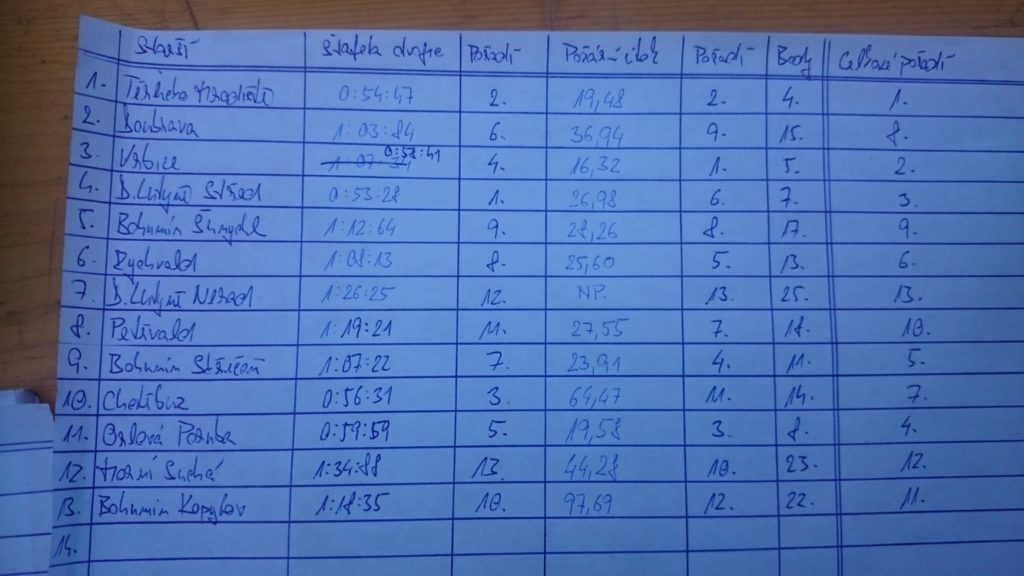 Starší Štafeta dvojic Pořadí Požární útok Pořadí Body Celkové pořadí
1. Těrlicko Hradiště 0:54:47 2. 19,48 2. 4. 1.
2. Doubrava 1:03:84 6. 36,94 9. 15. 8.
3. Vrbice 1:07:34 0:58:41 4. 16,32 1. 5. 2.
4. D. Lutyně Střed 0:53:28 1. 26,98 6. 7. 3.
5. Bohumín Šunychl 1:12:64 9. 28,26 8. 17. 9.
6. Rychvald 1:08:13 8. 25,60 5. 13. 6.
7. D. Lutyně Nerad 1:26:25 12. NP. 13. 25. 13.
8. Petřvald 1:19:21 11. 27,55 7. 18. 10.
9. Bohumín Skřečoň 1:07:22 7. 23,91 4. 11. 5.
10. Chotěbuz 0:56:31 3. 64,47 11. 14. 7.
11. Orlová Poruba 0:59:59 5. 19,58 3. 8. 4.
12. Horní Suchá 1:34:88 13. 44,28 10. 23. 12.
13. Bohumín Kopytov 1:18:35 10. 97,69 12. 22. 11.
14.